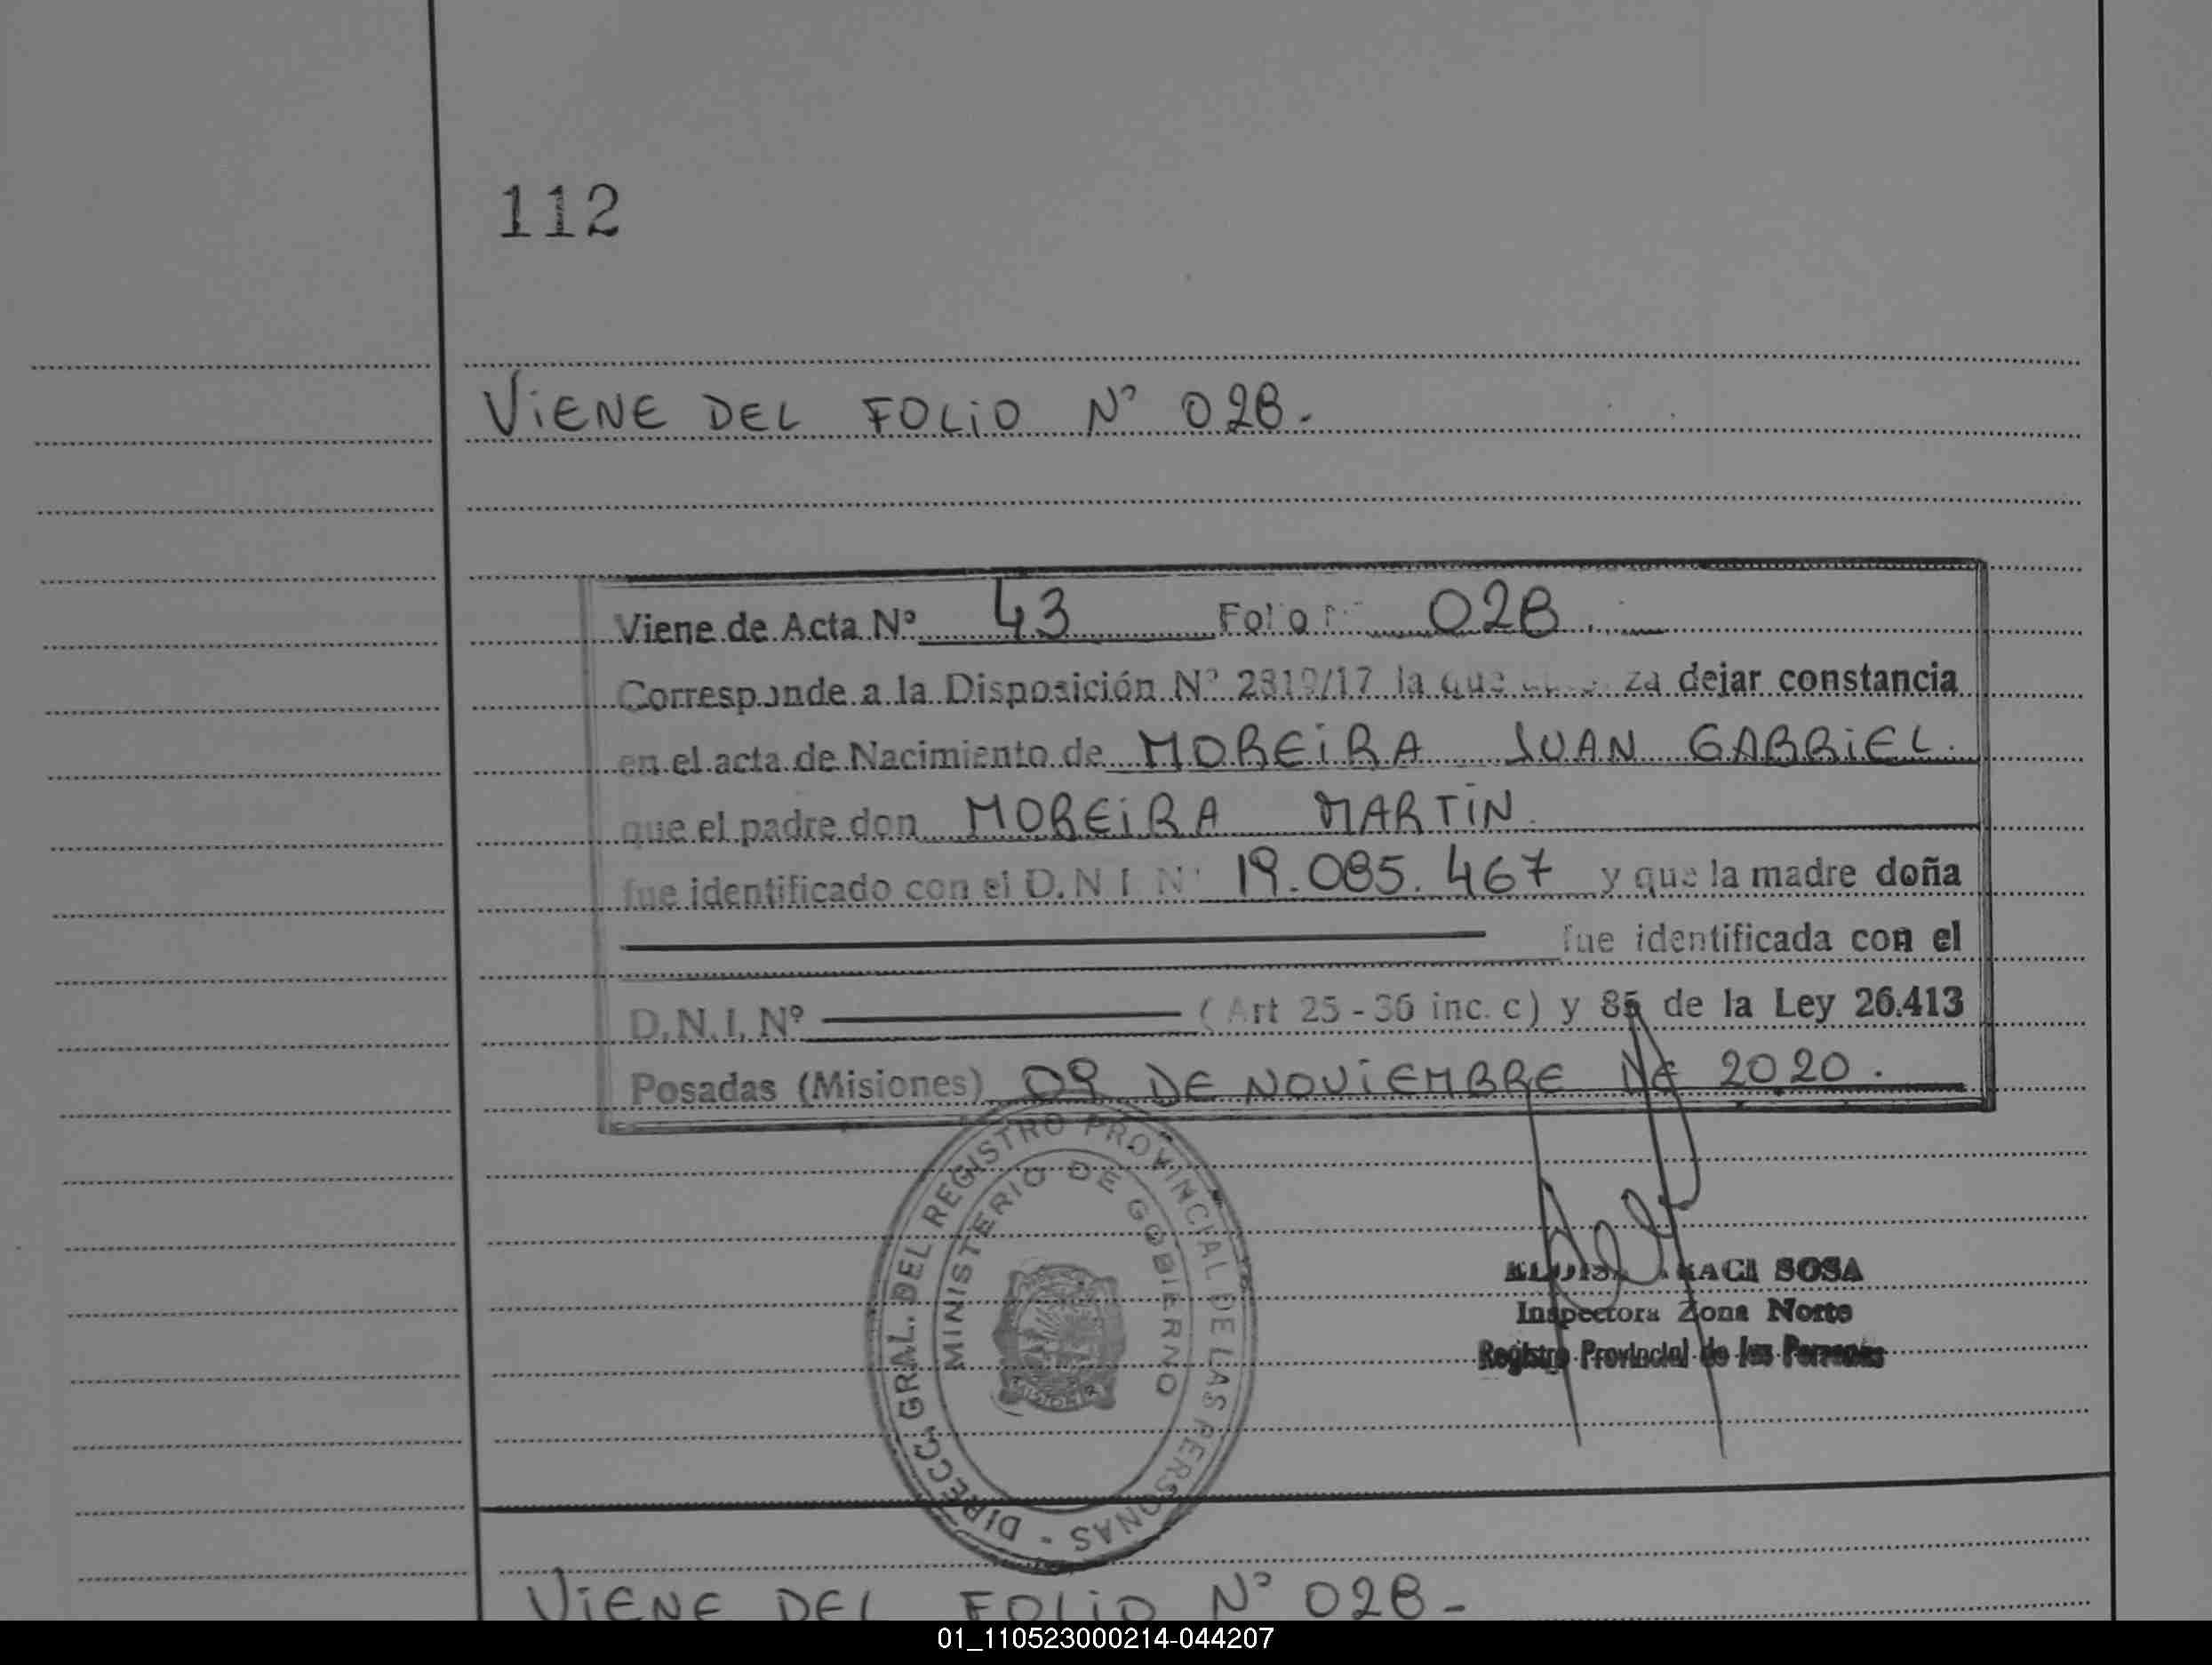 112
ViENE DEL FOLiO Nº 028.
Viene de Acta Nº 43 Folio Nº 028.
Corresponde a la Disposición Nº 2819/17 la que dejar constancia
en el acta de Nacimiento de MOREiRA JUAN GABRiEL.
que el padre don MOREiRA MARTiN.
fue identificado con el D.N.I. Nº 19.085.467 y que la madre doña
fue identificada con el
D.N.I. Nº ( Art 25 - 36 inc. c) y 85 de la Ley 26.413
Posadas (Misiones) 09 DE NOViEMBRE DE 2020.
DIRECC. GRAL. DEL REGISTRO PROVINCIAL DE LAS PERSONAS -
MINISTERIO DE GOBIERNO
MISIONES
SOSA
Inspectora Zona Norte
Registro Provincial de las Personas
ViENE DEL FOLiO Nº 028-
01_110523000214-044207